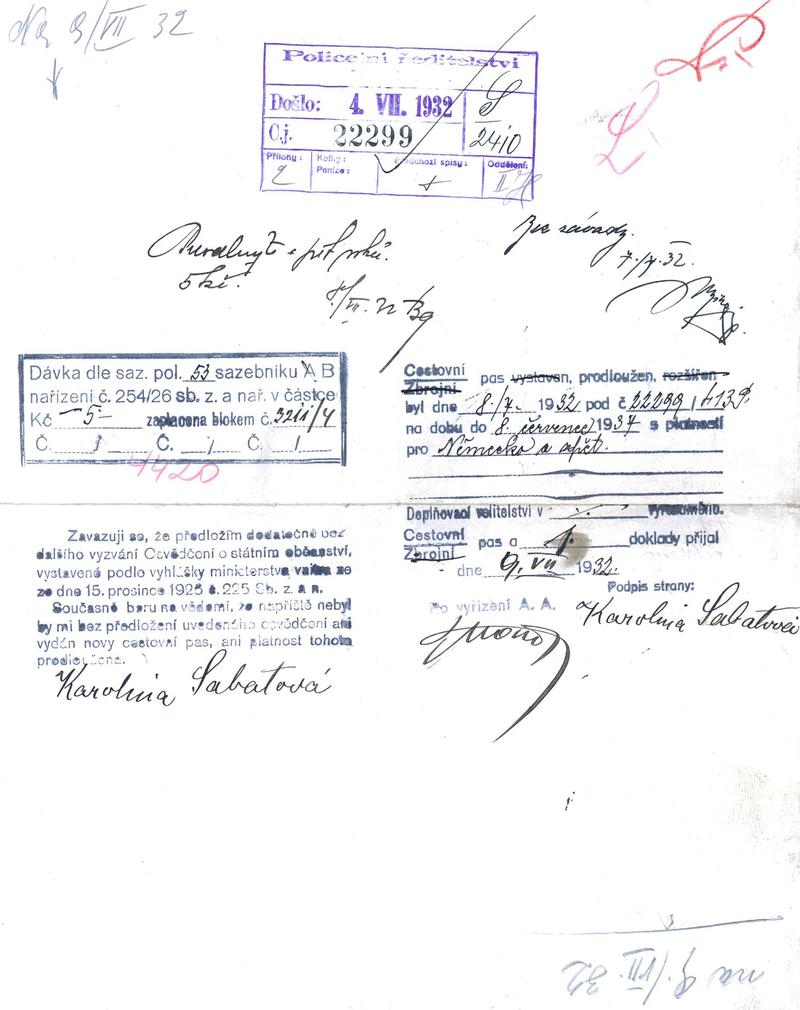 Na 9/VII 32
Policejní ředitelství
Došlo: 4. VII. 1932 S
Č.j. 22299 2410
Přílohy: 2 Kolky: Peníze: Předchozí spisy: Oddělení: II
5 Kč.
Bez závady.
7./7.32.
Dávka dle saz. pol. 53 sazebníku A B
nařízení č. 254/26 sb. z. a nař. v částce
Kč —5— zaplacena blokem č. 3211/4
Č. / Č. / Č. /
1420
Cestovní
Zbrojní pas vystaven, prodloužen, rozšířen
byl dne 8./7. 1932 pod č 22299
na dobu do 8. července 1937 s platností
pro Německo a zpět.
Doplňovací velitelství v vyrozuměno.
Cestovní
Zbrojní pas a 1. doklady přijal
dne 9. VII 1932.
Podpis strany:
Karolina Sabatová
Po vyřízení A. A.
Zavazuji se, že předložím dodatečně bez
dalšího vyzvání Osvědčení o státním občanství,
vystavené podle vyhlášky ministerstva vnitra ze
ze dne 15. prosince 1925 č. 225 Sb. z. a n.
Současně beru na vědomí, že napříště nebyl
by mi bez předložení uvedeného osvědčení ani
vydán nový cestovní pas, ani platnost tohoto
prodloužena.
Karolina Sabatová
na 9/VII. 32